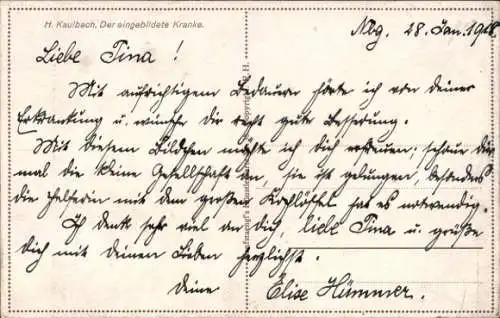 H. Kaulbach, Der eingebildete Kranke.
Nbg. 28. Jan. 1918.
Liebe Tina!
Mit aufrichtigem Bedauern hörte ich von deiner
Erkrankung u. wünsche dir recht gute Besserung.
Mit diesem Bildchen möchte ich dich erfreuen; schau dir
mal die kleine Gesellschaft an, sie ist gelungen, besonders
die Helferin mit dem großen Kochlöffel hat es notwendig.
Ich denk sehr viel an dich, liebe Tina u. grüße
dich mit deinen Lieben herzlichst.
deine
Elise Hümmer.